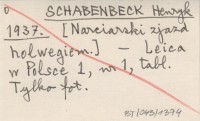 SCHABENBECK Henryk
1937. [Narciarski zjazd
holwegiem.] – Leica
w Polsce 1, nr 1, tabl.
Tylko fot.
BT/093/1374